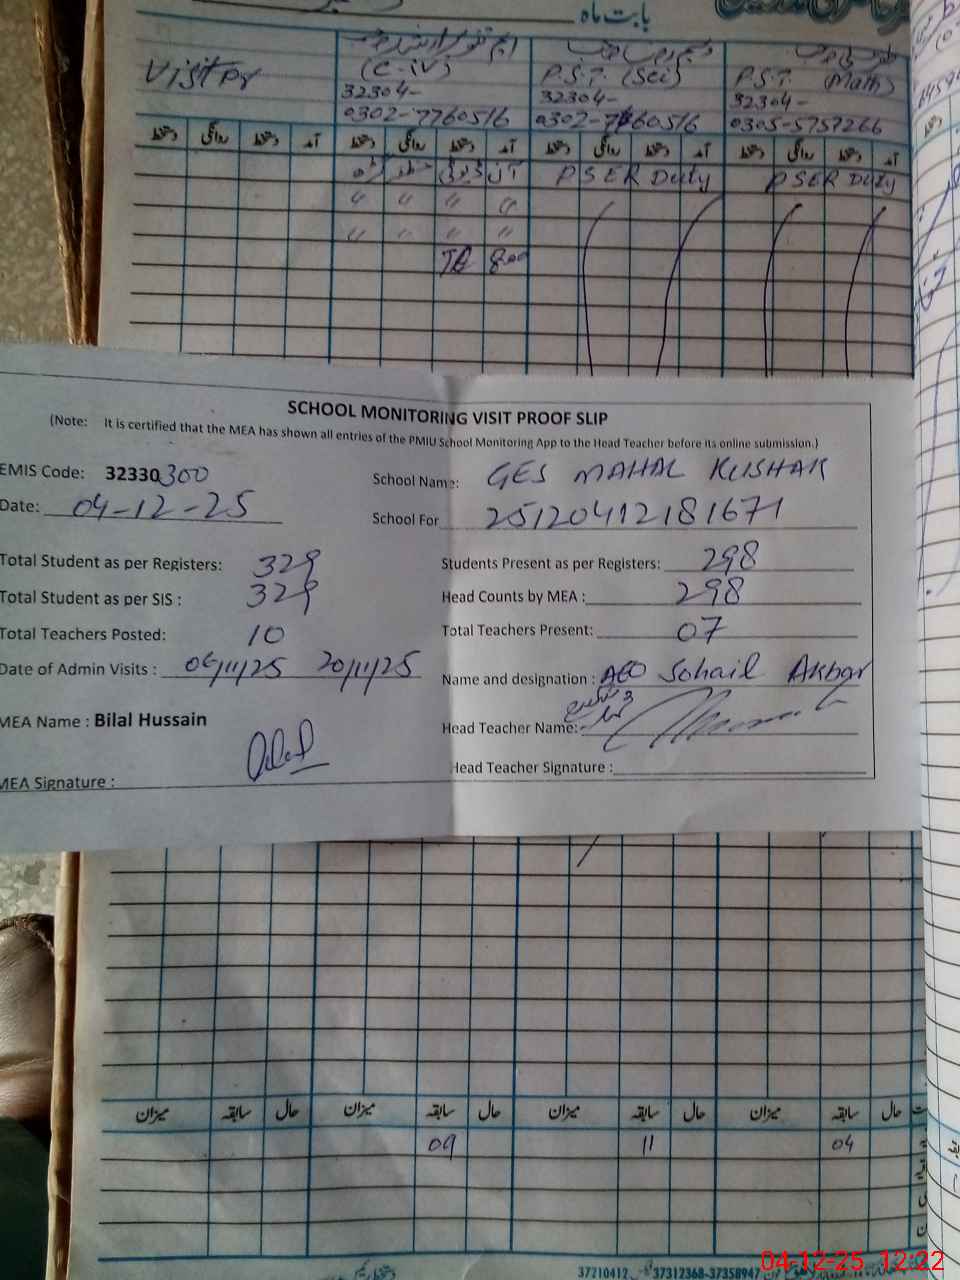 بابت ماہ
Visit Pr
(C-iV)
P.S.T. (Sci)
P.S.T. (Math)
32304-
32304-
32304-
0302-7760516
0302-7760516
0305-5757266
دستخط روانگی دستخط آمد دستخط روانگی دستخط آمد دستخط روانگی دستخط آمد دستخط روانگی دستخط آمد
PSER Duty
PSER Duty
〃 〃 〃 〃
〃 〃 〃 〃
800
SCHOOL MONITORING VISIT PROOF SLIP
(Note: It is certified that the MEA has shown all entries of the PMIU School Monitoring App to the Head Teacher before its online submission.)
EMIS Code: 32330300
School Name: GES MAHAL KUSHAK
Date: 04-12-25
School For 25120412181671
Total Student as per Registers: 329
Students Present as per Registers: 298
Total Student as per SIS : 329
Head Counts by MEA : 298
Total Teachers Posted: 10
Total Teachers Present: 07
Date of Admin Visits : 06/11/25 20/11/25
Name and designation : AEO Sohail Akbar
MEA Name : Bilal Hussain
Head Teacher Name:
MEA Signature :
Head Teacher Signature :
میزان سابقہ حال میزان سابقہ حال میزان سابقہ حال میزان سابقہ حال
09 11 04
37210412 37312368-37358947
04-12-25 12:22